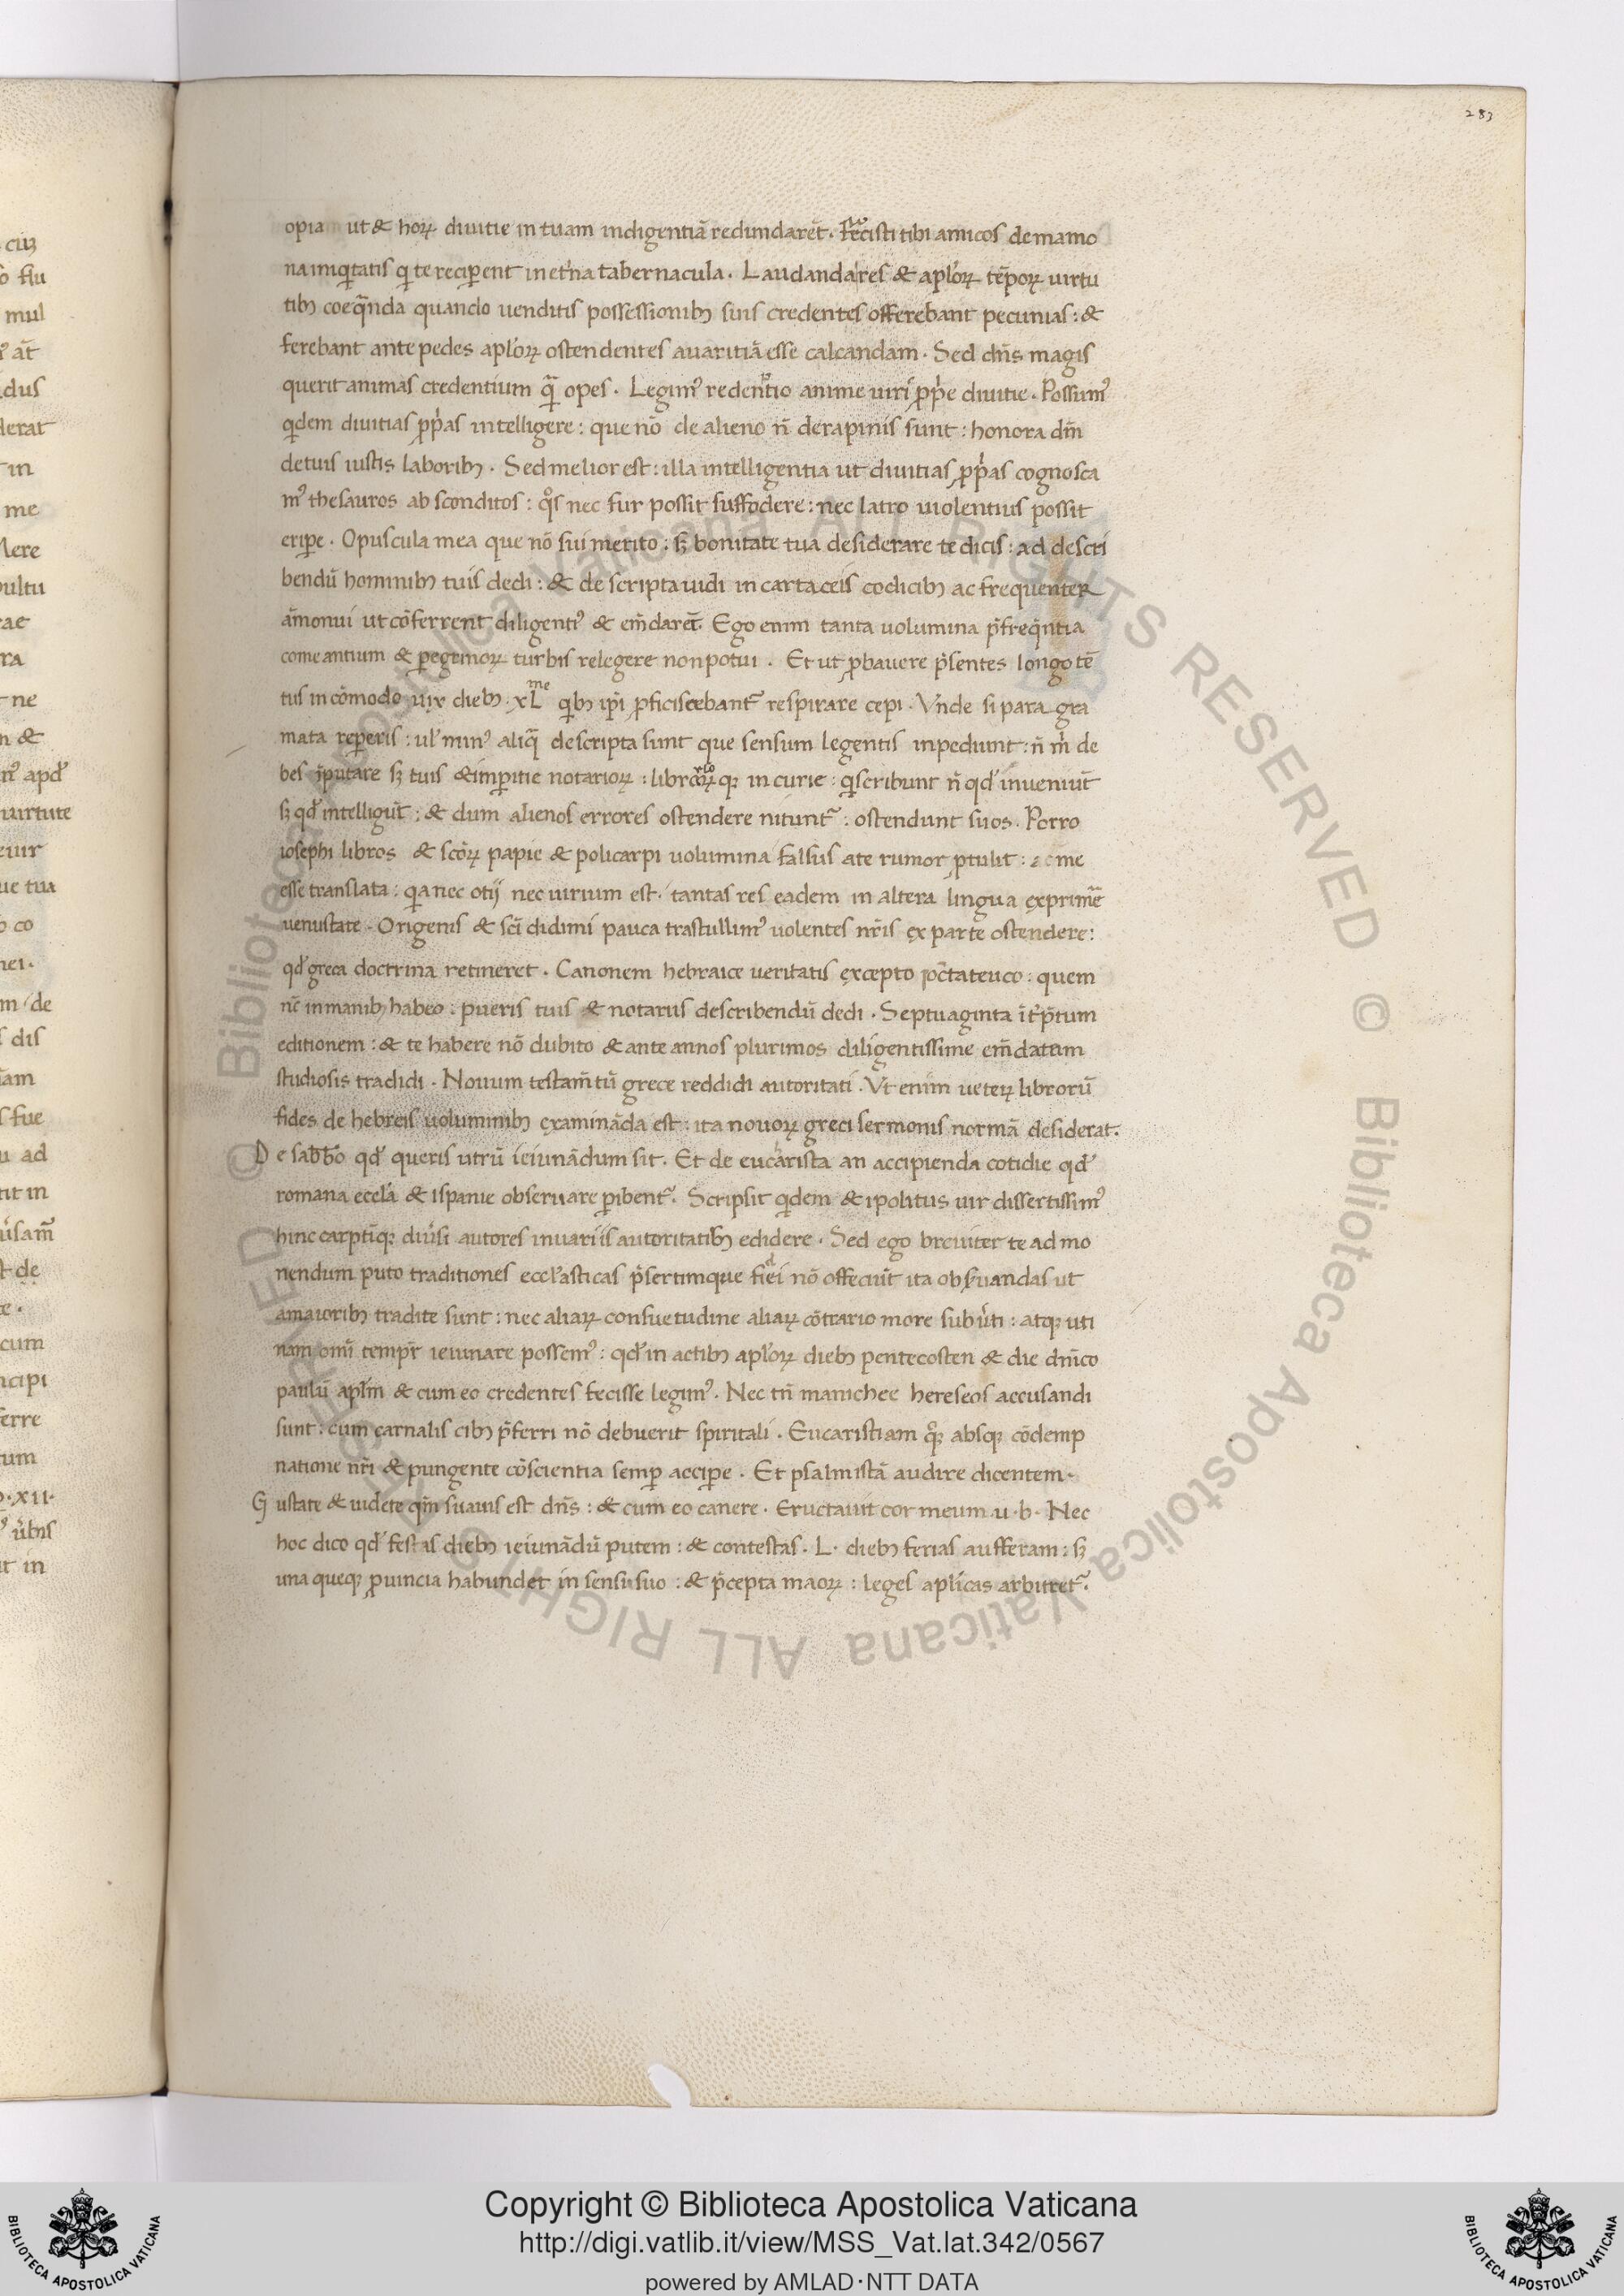 283
opiam ut & horꝝ diuitie in tuam indigentiā redundarēt. Fecisti tibi amicos demamo
na iniq̇tatis q̇ te reciꝑent in et̾na tabernacula. Laudanda res & apl̾orꝝ tēporꝝ uirtu
tibꝫ coeq̄nda quando uenditis possessionibꝫ suis credentes offerebant pecunias: &
ferebant ante pedes apl̾orꝝ ostendentes auaritiā esse calcandam. Sed dn̄s magis
querit animas credentium q̄ opes. Legim᾽ redemtio anime uiri ꝓp̾e diuitie. Possum᾽
q̇dem diuitias ꝓp̾as intelligere: que nō de alieno n̄ derapinis sunt: honora dm̄
detuis iustis laboribꝫ. Sed melior est: illa intelligentia ut diuitias ꝓp̾as cognosca
m᾽ thesauros absconditos: q̊s nec fur possit suffodere: nec latro uiolentius possit
eriꝑe. Opuscula mea que nō sui merito: sꝫ bonitate tua desiderare te dicis: ad descri
bendū hominibꝫ tuis dedi: & descripta uidi in cartaceis codicibꝫ ac frequenter
āmonui ut cōferrent diligenti᾽ & em̄darēt. Ego enim tanta uolumina p̄ freq̄ntia
comeantium & ꝑegrinorꝝ turbis relegere non potui. Et ut ꝓbauere p̄sentes longo tē
tus incōmodo uix diebꝫ xLme q̇bꝫ ip̄i ꝓficiscebant᾽ respirare cepi. Vnde si para gra
mata reꝑeris: ul̾ min᾽ aliq̄ descripta sunt que sensum legentis inpediunt: n̄ m̍ de
bes īputare sꝫ tuis & imꝑitie notariorꝝ: librariorꝝ qꝫ incurie: q̇ scribunt n̄ qđ inueniūt
sꝫ qđ intelligūt: & dum alienos errores ostendere nitunt᾽: ostendunt suos. Porro
iosephi libros & scōrꝝ papie & policarpi uolumina falsus ate rumor ꝑtulit: a me
esse translata: q̇a nec otij nec uirium est. tantas res eadem in altera lingua exprime᾽
uenustate. Origenis & sc̄i didimi pauca trastullim᾽ uolentes nr̄is ex parte ostendere:
qđ greca doctrina retineret. Canonem hebraice ueritatis excepto octateuco: quem
nc̄ in manibꝫ habeo: pueris tuis & notariis describendū dedi. Septuaginta īt̾p̄tum
editionem: & te habere nō dubito & ante annos plurimos diligentissime em̄datum
studiosis tradidi. Nouum testam̄tū grece reddidi autoritati. Vt enim ueterꝝ librorū
fides de hebreis uoluminibꝫ examināda est: ita nouorꝝ greci sermonis normā desiderat.
De sabb̄o qđ queris utrū ieiunādum sit. Et de eucaristia an accipienda cotidie qđ
romana eccl̾a & ispanie obseruare ꝑibent᾽. Scripsit q̇dem & ipolitus uir dissertissim᾽
hinc carptīqꝫ diuisi autores in uariis autoritatibꝫ edidere. Sed ego breuiter te ad mo
nendum puto traditiones eccl̾asticas p̄sertimque fidei nō officiūt ita obs̾uandas ut
amaioribꝫ tradite sunt: nec aliarꝝ consuetudine aliarꝝ cōtrario more subu̾ti: atqꝫ uti
nam omī tempr̄ ieiunare possem᾽: qđ in actibꝫ apl̾orꝝ diebꝫ pentecosten & die dn̄ico
paulū apl̄m & cum eo credentes fecisse legim᾽. Nec tn̄ manichee hereseos accusandi
sunt: cum carnalis cibꝫ p̄ferri nō debuerit spiritali. Eucaristiam q̊qꝫ absqꝫ cōdemp
natione nr̄i & pungente cōscientia semꝑ acciꝑe. Et psalmistā audire dicentem.
Gustate & uidete qm̄ suauis est dn̄s: & cum eo canere. Eructauit cor meum u. b. Nec
hoc dico qđ festis diebꝫ ieiunādū putem: & contestas. L. diebꝫ ferias aufferam: sꝫ
una queqꝫ ꝓuincia habundet in sensu suo: & p̄cepta maorꝝ: leges apl̾icas arbitret᾽.
Copyright © Biblioteca Apostolica Vaticana
http://digi.vatlib.it/view/MSS_Vat.lat.342/0567
powered by AMLAD·NTT DATA